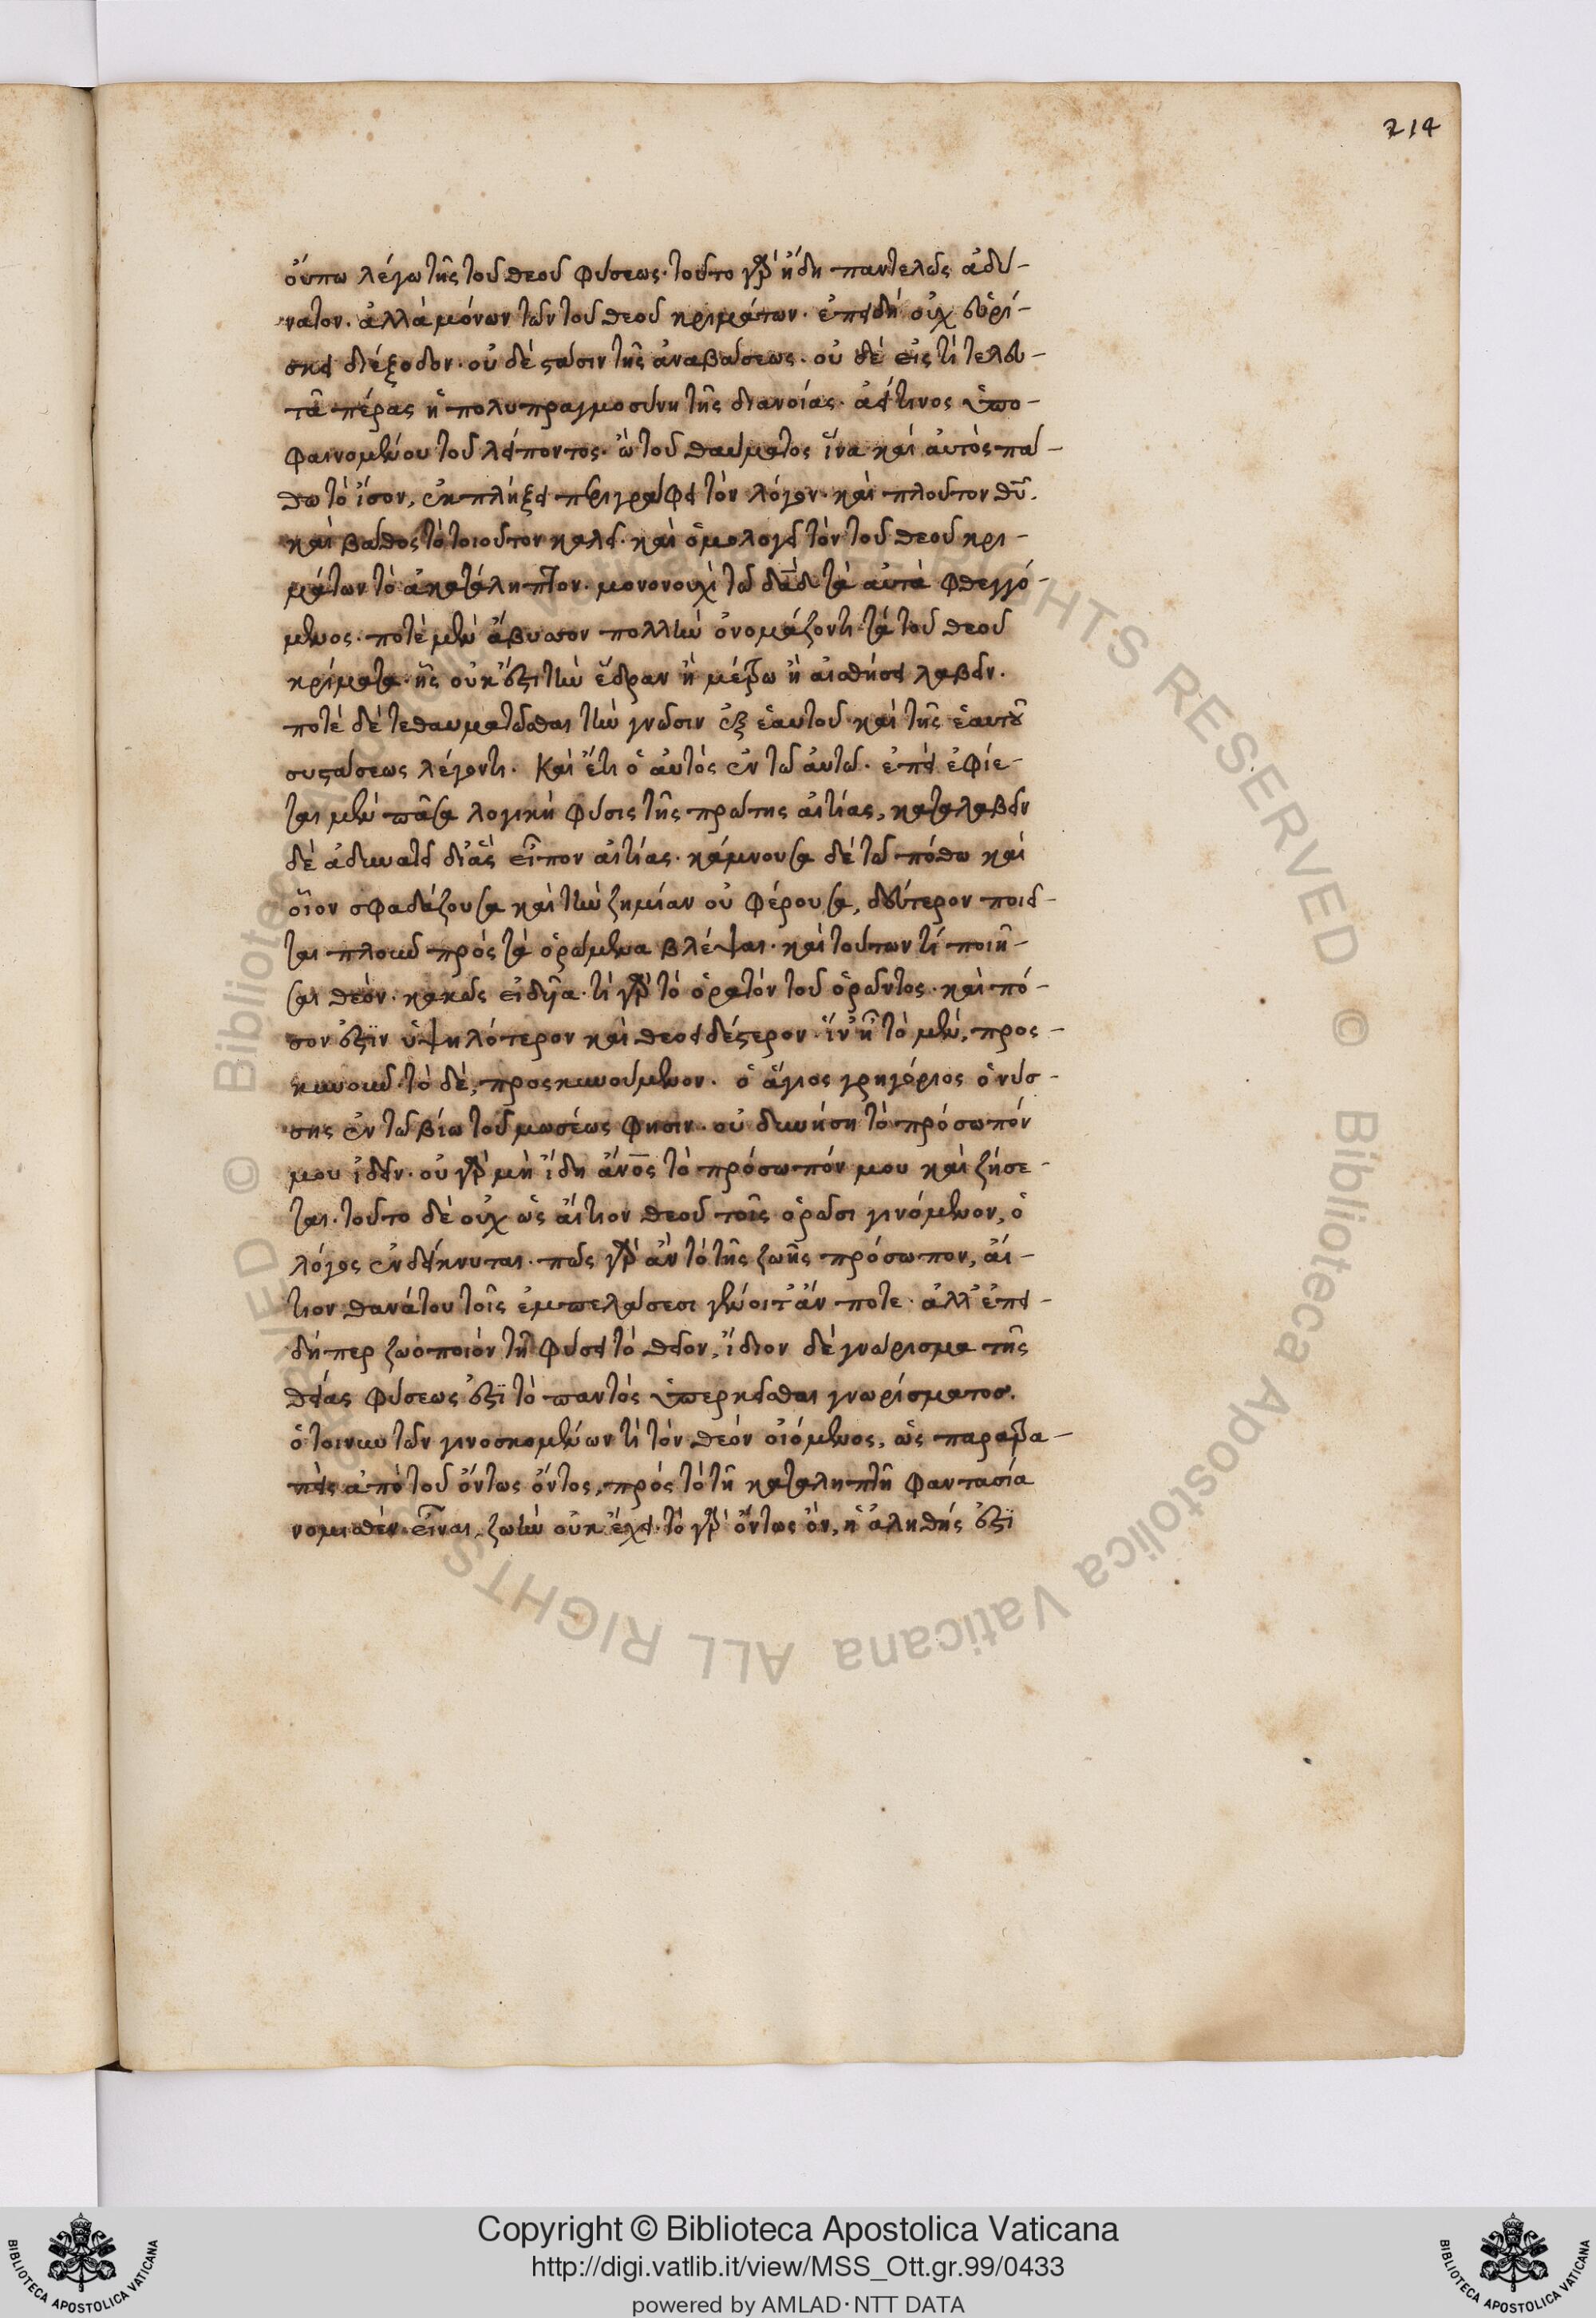 214
οὔπω λέγω τῆς τοῦ θεοῦ φύσεως· τοῦτο γὰρ ἤδη παντελῶς ἀδύ-
νατον. ἀλλὰ μόνων τῶν τοῦ θεοῦ κριμάτων. ἐπειδὴ οὐχ εὑρί-
σκει διέξοδον· οὐδὲ στάσιν τῆς ἀναβάσεως. οὐδὲ εἰς τί τελευ-
τᾶ πέρας ἡ πολυπραγμοσύνη τῆς διανοίας. ἀεί τινος ὑπο-
φαινομένου τοῦ λείποντος. ὢ τοῦ θαύματος ἵνα καὶ αὐτὸς πά-
θω τὸ ἴσον, ἐκπλήξει περιγράφει τὸν λόγον· καὶ πλοῦτον θῦ.
καὶ βάθος τὸ τοιοῦτον καλεῖ. καὶ ὁμολογεῖ τὸν τοῦ θεοῦ κρι-
μάτων τὸ ἀκατάληπτον. μονονουχὶ τῶ δᾱδ τὰ αὐτὰ φθεγγό-
μενος. ποτὲ μὲν ἄβυσσον πολλὴν ὀνομάζοντι τὰ τοῦ θεοῦ
κρίματα· ἧς οὐκ ἔστι τὴν ἕδραν ἢ μέτρω ἢ αἰσθήσει λαβεῖν.
ποτὲ δὲ τεθαυματῶσθαι τὴν γνῶσιν ἐξ ἑαυτοῦ καὶ τῆς ἑαυτοῦ
συστάσεως λέγοντι. Καὶ ἔτι ὁ αὐτὸς ἐν τῶ αὐτῶ. ἐπεὶ ἐφίε-
ται μὲν πᾶσα λογικὴ φύσις τῆς πρώτης αἰτίας, καταλαβεῖν
δὲ ἀδυνατεῖ δι᾽ ἃς εἶπον αἰτίας. κάμνουσα δὲ τῶ πόθω καὶ
οἷον σφαδάζουσα καὶ τὴν ζημίαν οὐ φέρουσα, δεύτερον ποιεῖ-
ται πλοῦν πρὸς τὰ ὁρώμενα βλέψαι. καὶ τούτων τί ποιῆ-
σαι θεόν. κακῶς εἰδυῖα. τί γὰρ τὸ ὁρατὸν τοῦ ὁρῶντος. καὶ πό-
σον ἐστὶν ὑψηλότερον καὶ θεοειδέστερον. ἵν᾽ ᾖ τὸ μὲν, προς-
κυνοῦν τὸ δὲ, προσκυνούμενον. ὁ ἅγιος γρηγόριος ὁ νύσ-
σης ἐν τῶ βίω τοῦ μωσέως φησιν. οὐ δυνήση τὸ πρόσωπόν
μου ἰδεῖν. οὐ γὰρ μὴ ἴδη ἄνος τὸ πρόσωπόν μου καὶ ζήσε-
ται. τοῦτο δὲ οὐχ ὡς αἴτιον θεοῦ τοῖς ὁρῶσι γινόμενον, ὁ
λόγος ἐνδείκνυται. πῶς γὰρ ἂν τὸ τῆς ζωῆς πρόσωπον, αἴ-
τιον θανάτου τοῖς ἐμπελάσεσι γένοιτ᾽ ἄν ποτε. ἀλλ᾽ ἐπει-
δήπερ ζωοποιὸν τῆ φύσει τὸ θεῖον, ἴδιον δὲ γνώρισμα τῆς
θείας φύσεως ἐστὶ τὸ παντὸς ὑπερκεῖσθαι γνωρίσματος.
ὁ τοίνυν τῶν γινοσκομένων τὶ τὸν θεὸν οἰόμενος, ὡς παρατρα-
πεὶς ἀπὸ τοῦ ὄντως ὄντος, πρὸς τὸ τῆ καταληπτῆ φαντασία
νομισθὲν εἶναι, ζωὴν οὐκ ἔχει. τὸ γὰρ ὄντως ὂν, ἡ ἀληθὴς ἐστὶ
Copyright © Biblioteca Apostolica Vaticana
http://digi.vatlib.it/view/MSS_Ott.gr.99/0433
powered by AMLAD·NTT DATA